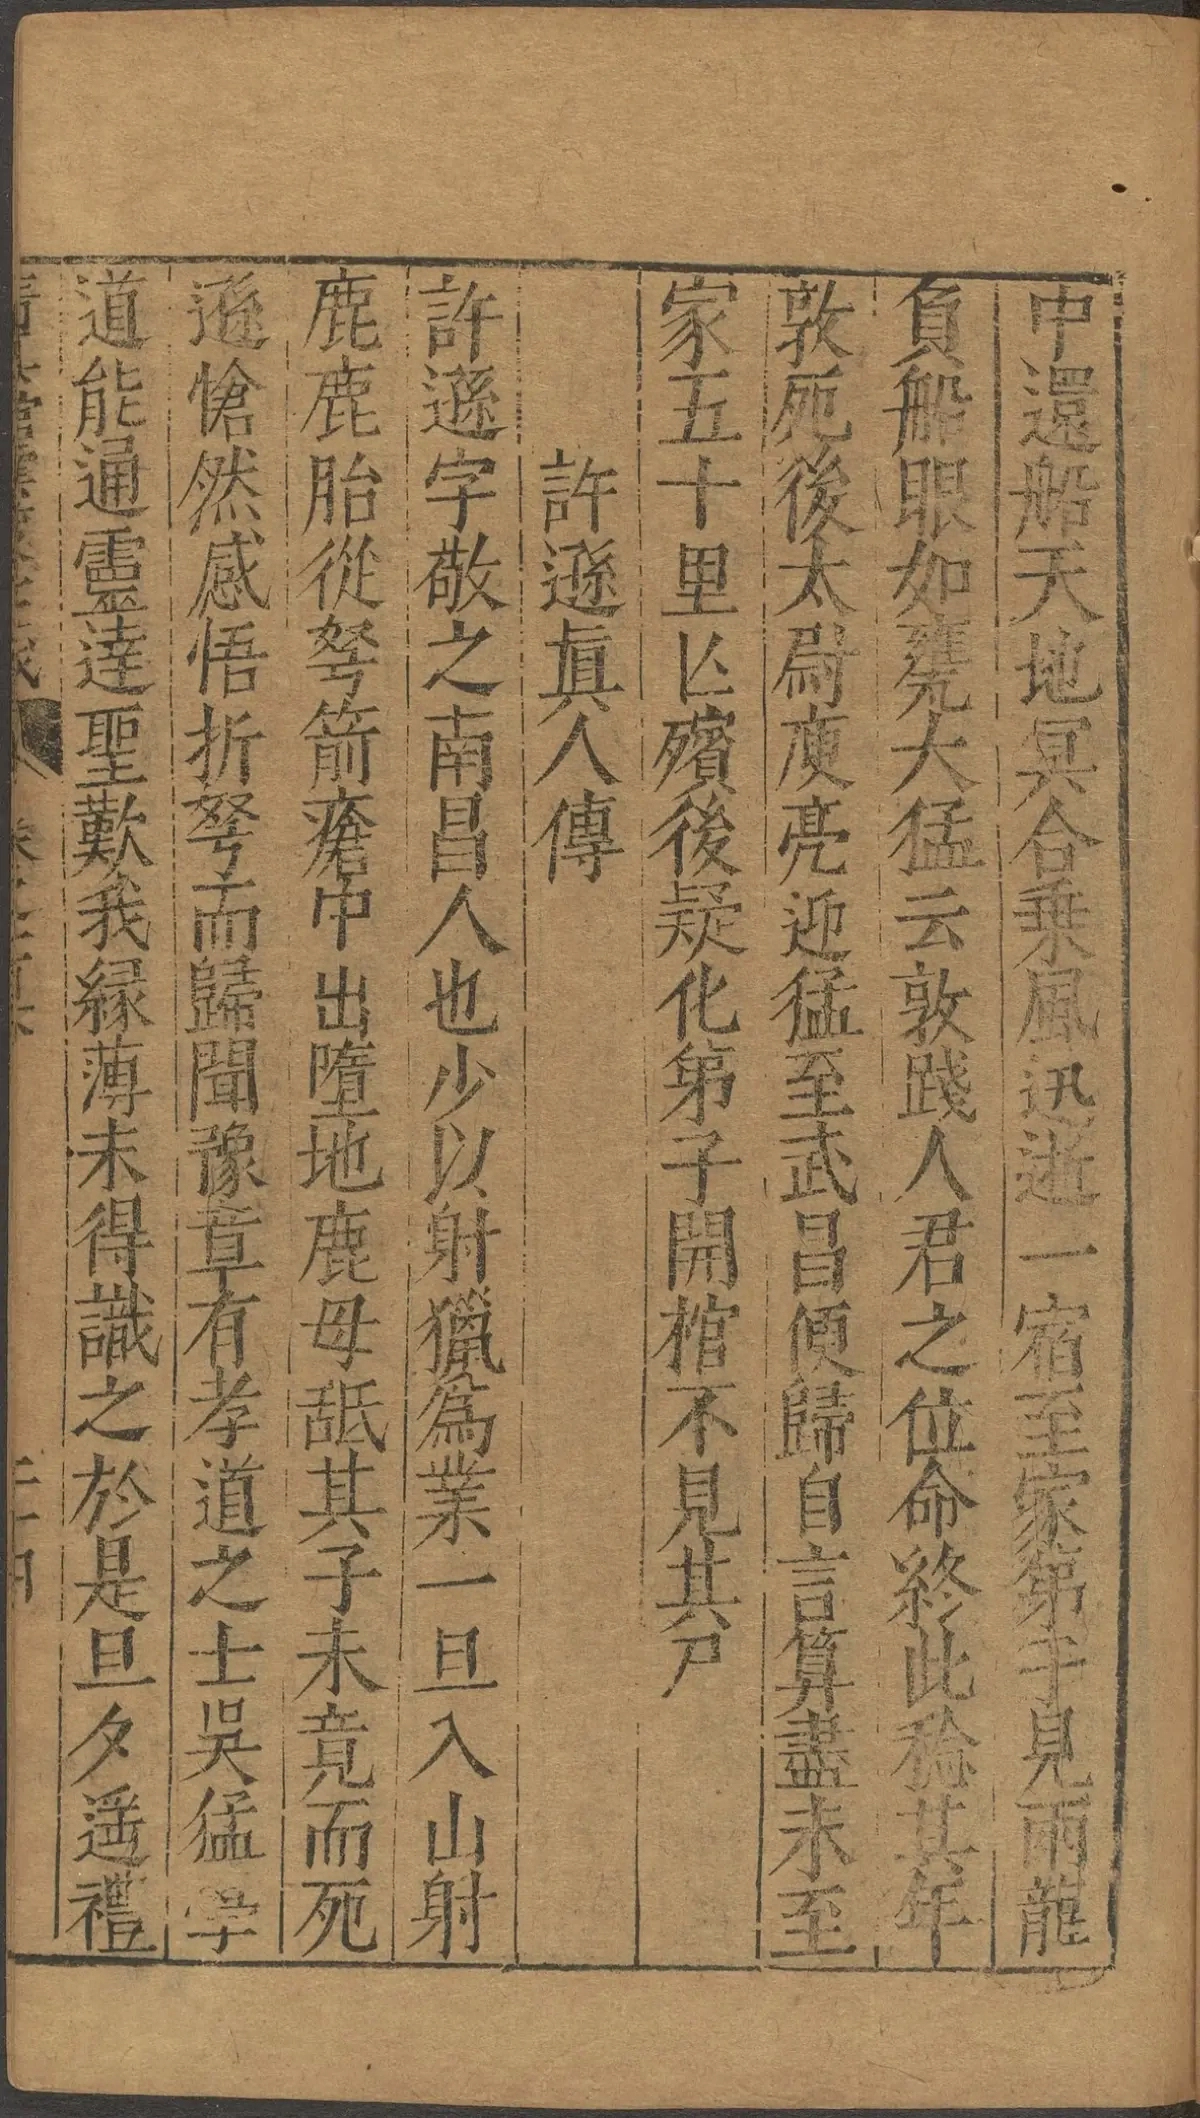 中還船天地冥合乗風迅逝一宿至家第子見兩龍
負船眼如甕大猛云敦踐人君之位命終此稔其年
敦死後太尉庾亮迎猛至武昌便歸自言算盡未至
家五十里亾殯後疑化第子開棺不見其尸
許遜眞人傳
許遜字敬之南昌人也少以射獵爲業一旦入山射
鹿鹿胎從弩箭瘡中出墮地鹿母舐其子未竟而死
遜愴然感悟折弩而歸聞豫章有孝道之士吳猛学
道能通靈達聖歎我緣薄未得識之於是旦夕遥禮